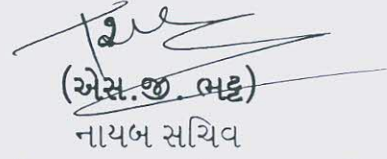 (એસ.જી. ભટ્ટ)
નાયબ સચિવ